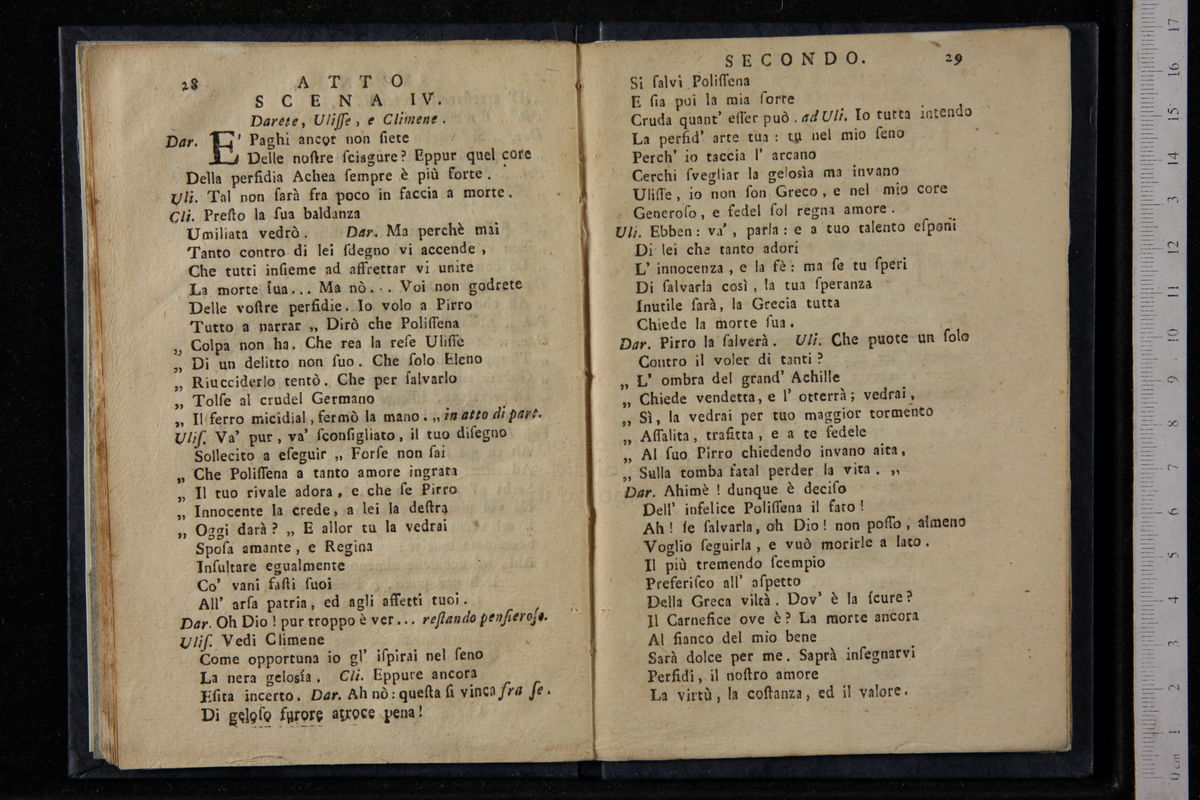 28 ATTO
SCENA IV.
Darete, Ulisse, e Climene.
Dar. E' Paghi ancor non siete
Delle nostre sciagure? Eppur quel core
Della perfidia Achea sempre è più forte.
Uli. Tal non sarà fra poco in faccia a morte.
Cli. Presto la sua baldanza
Umiliata vedrò. Dar. Ma perchè mai
Tanto contro di lei sdegno vi accende,
Che tutti insieme ad affrettar vi unite
La morte sua... Ma nò... Voi non godrete
Delle vostre perfidie. Io volo a Pirro
Tutto a narrar „ Dirò che Polissena
„ Colpa non ha. Che rea la rese Ulisse
„ Di un delitto non suo. Che solo Eleno
„ Riucciderlo tentò. Che per salvarlo
„ Tolse al crudel Germano
„ Il ferro micidial, fermò la mano. „ in atto di part.
Ulis. Va' pur, va' sconsigliato, il tuo disegno
Sollecito a eseguir „ Forse non sai
„ Che Polissena a tanto amore ingrata
„ Il tuo rivale adora, e che se Pirro
„ Innocente la crede, a lei la destra
„ Oggi darà? „ E allor tu la vedrai
Sposa amante, e Regina
Insultare egualmente
Co' vani fasti suoi
All' arsa patria, ed agli affetti tuoi.
Dar. Oh Dio! pur troppo è ver... restando pensieroso.
Ulis. Vedi Climene
Come opportuna io gl' ispirai nel seno
La nera gelosía. Cli. Eppure ancora
Esita incerto. Dar. Ah nò: questa si vinca fra se.
Di geloso furore atroce pena!
SECONDO. 29
Si salvi Polissena
E sia poi la mia sorte
Cruda quant' esser può. ad Uli. Io tutta intendo
La perfid' arte tua: tu nel mio seno
Perch' io taccia l' arcano
Cerchi svegliar la gelosìa ma invano
Ulisse, io non son Greco, e nel mio core
Generoso, e fedel sol regna amore.
Uli. Ebben: va', parla: e a tuo talento esponi
Di lei che tanto adori
L' innocenza, e la fè: ma se tu speri
Di salvarla così, la tua speranza
Inutile sarà, la Grecia tutta
Chiede la morte sua.
Dar. Pirro la salverà. Uli. Che puote un solo
Contro il voler di tanti?
„ L' ombra del grand' Achille
„ Chiede vendetta, e l' otterrà; vedrai,
„ Sì, la vedrai per tuo maggior tormento
„ Assalita, trafitta, e a te fedele
„ Al suo Pirro chiedendo invano aita,
„ Sulla tomba fatal perder la vita. „
Dar. Ahimè! dunque è deciso
Dell' infelice Polissena il fato!
Ah! se salvarla, oh Dio! non posso, almeno
Voglio seguirla, e vuò morirle a lato.
Il più tremendo scempio
Preferisco all' aspetto
Della Greca viltà. Dov' è la scure?
Il Carnefice ove è? La morte ancora
Al fianco del mio bene
Sarà dolce per me. Saprà insegnarvi
Perfidi, il nostro amore
La virtù, la costanza, ed il valore.